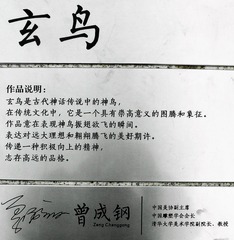 玄鸟
作品说明：
玄鸟是古代神话传说中的神鸟，
在传统文化中，它是一个具有崇高意义的图腾和象征。
作品意在表现神鸟振翅欲飞的瞬间，
表达对远大理想和翱翔腾飞的美好期许。
传递一种积极向上的精神，
志存高远的品格。
曾成钢
Zeng Chenggang
中国美协副主席
中国雕塑学会会长
清华大学美术学院副院长、教授